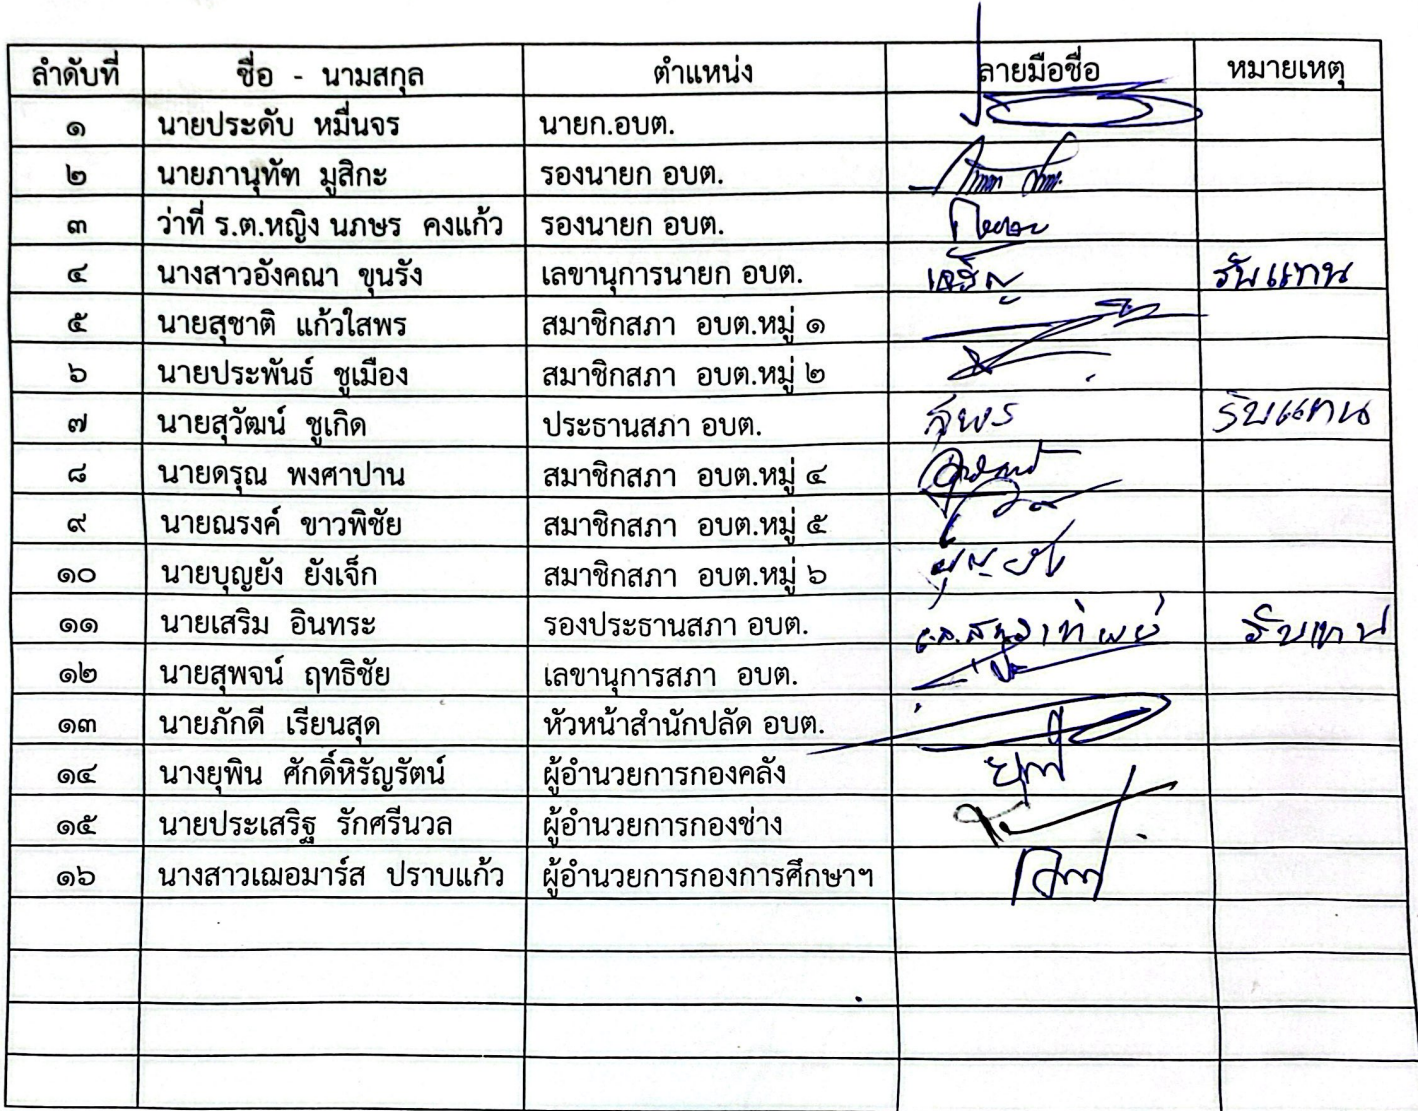 ลำดับที่ ชื่อ - นามสกุล ตำแหน่ง ลายมือชื่อ หมายเหตุ
๑ นายประดับ หมื่นจร นายก.อบต.
๒ นายภานุทัฑ มูสิกะ รองนายก อบต.
๓ ว่าที่ ร.ต.หญิง นภษร คงแก้ว รองนายก อบต.
๔ นางสาวอังคณา ขุนรัง เลขานุการนายก อบต. รับแทน
๕ นายสุชาติ แก้วใสพร สมาชิกสภา อบต.หมู่ ๑
๖ นายประพันธ์ ชูเมือง สมาชิกสภา อบต.หมู่ ๒
๗ นายสุวัฒน์ ชูเกิด ประธานสภา อบต. สุพร รับแทน
๘ นายดรุณ พงศาปาน สมาชิกสภา อบต.หมู่ ๔
๙ นายณรงค์ ขาวพิชัย สมาชิกสภา อบต.หมู่ ๕
๑๐ นายบุญยัง ยังเจ็ก สมาชิกสภา อบต.หมู่ ๖ บุญยัง
๑๑ นายเสริม อินทระ รองประธานสภา อบต. รับแทน
๑๒ นายสุพจน์ ฤทธิชัย เลขานุการสภา อบต.
๑๓ นายภักดี เรียนสุด หัวหน้าสำนักปลัด อบต.
๑๔ นางยุพิน ศักดิ์หิรัญรัตน์ ผู้อำนวยการกองคลัง
๑๕ นายประเสริฐ รักศรีนวล ผู้อำนวยการกองช่าง
๑๖ นางสาวเฌอมาร์ส ปราบแก้ว ผู้อำนวยการกองการศึกษาฯ